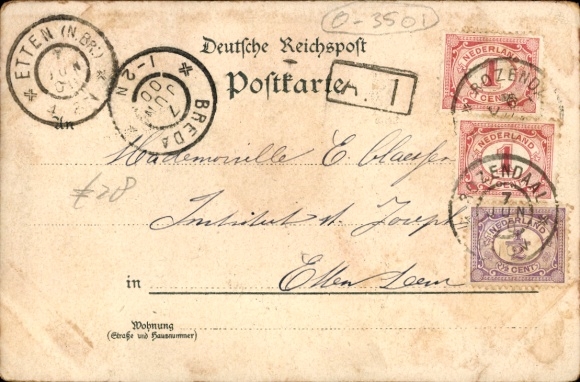 O-3501
ETTEN (N.BR.)
Deutsche Reichspost
Postkarte
1-2 N
7 JUN 00
BREDA
1
NEDERLAND
1
CENT
NEDERLAND
1
CENT
ROZENDAAL
7 JUN
NEDERLAND
½ CENT
An
Mademoiselle E. Claessen
£28
Institut st. Joseph
in Etten Leur
Wohnung
(Straße und Hausnummer)